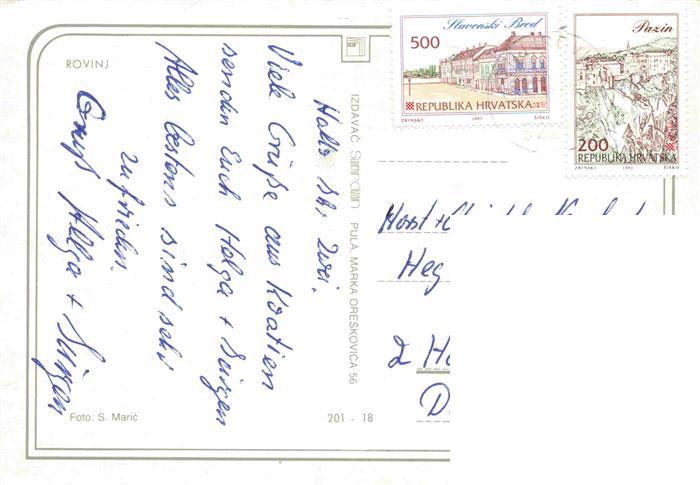 ROVINJ
Hallo Ihr zwei.
Viele Grüße aus Kroatien
senden Euch Helga + Jürgen
Alles bestens sind sehr
zufrieden.
Gruß Helga + Jürgen
Foto: S. Marić
201 - 18
IZDAVAČ PULA, MARKA OREŠKOVIĆA 56
Slavonski Brod
500
REPUBLIKA HRVATSKA
ZRINSKI 1993 ŠIŠKO
Pazin
200
REPUBLIKA HRVATSKA
ZRINSKI 1993 ŠIŠKO
Horst +
Heg
2 H
D